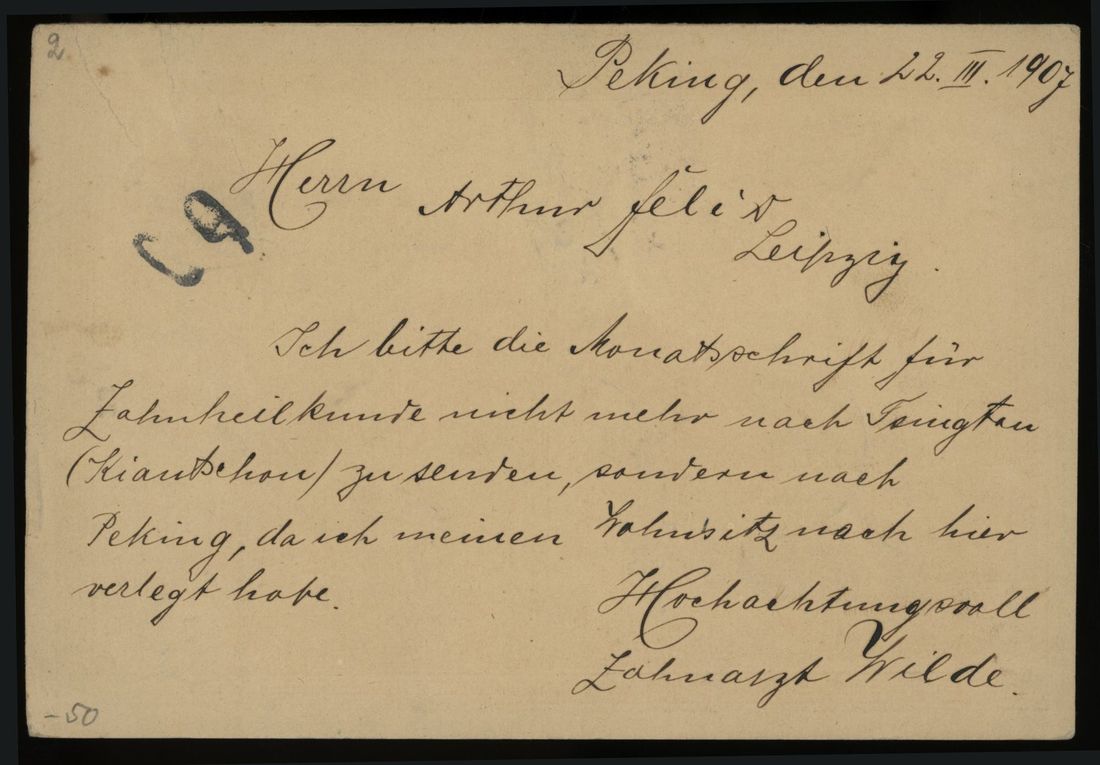 2
Peking, den 22. III. 1907
Herrn
Arthur Felix
Leipzig.
Ich bitte die Monatsschrift für
Zahnheilkunde nicht mehr nach Tsingtau
(Kiautschou) zu senden, sondern nach
Peking, da ich meinen Wohnsitz nach hier
verlegt habe.
Hochachtungsvoll
Zahnarzt Wilde.
-50